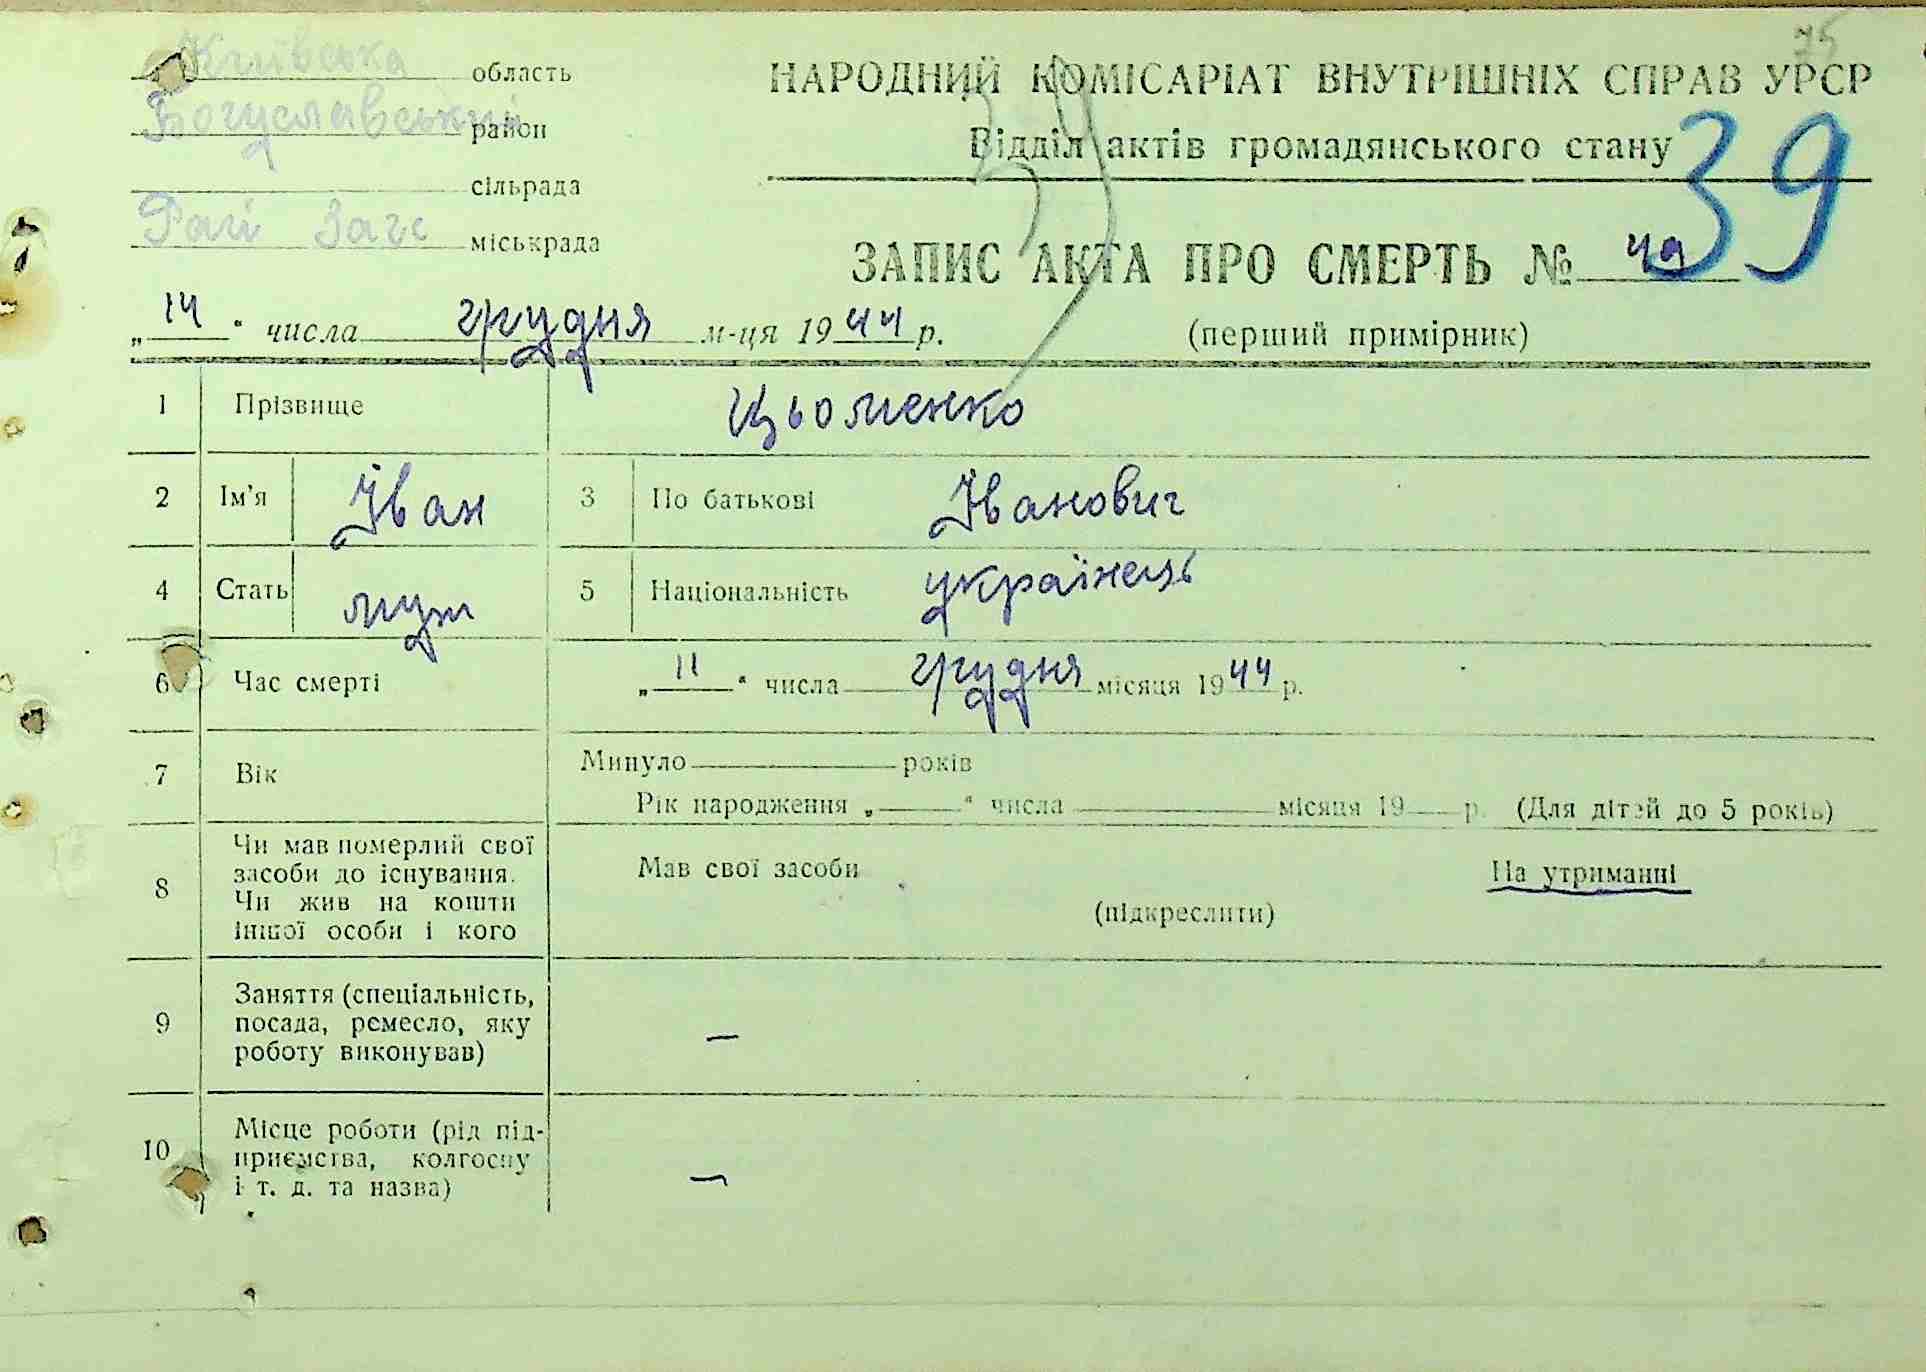 75
Київська область
Богуславський район
сільрада
Рай Загс міськрада
НАРОДНИЙ КОМІСАРІАТ ВНУТРІШНІХ СПРАВ УРСР
Відділ актів громадянського стану
39
ЗАПИС АКТА ПРО СМЕРТЬ №
„14“ числа грудня м-ця 1944 р.
(перший примірник)
1 Прізвище Цьоменко
2 Ім’я Іван 3 По батькові Іванович
4 Стать муж 5 Національність українець
6 Час смерті „11“ числа грудня місяця 1944 р.
7 Вік Минуло років
Рік народження „ “ числа місяця 19 р. (Для дітей до 5 років)
8 Чи мав померлий свої
засоби до існування.
Чи жив на кошти
іншої особи і кого
Мав свої засоби На утриманні
(підкреслити)
9 Заняття (спеціальність,
посада, ремесло, яку
роботу виконував)
–
10 Місце роботи (рід під-
приємства, колгоспу
і т. д. та назва)
–